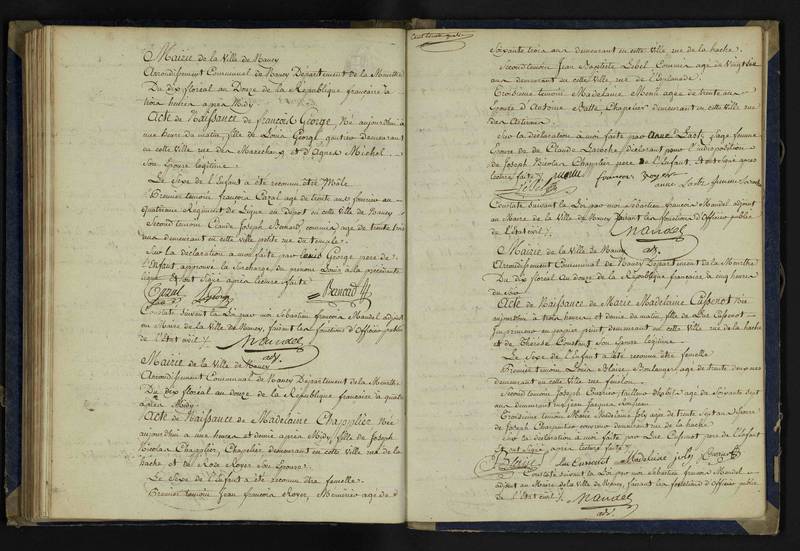 Mairie de la Ville de Nancy
Arrondissement Communal de Nancy Département de la Meurthe
Du dix floréal an Douze de la République française à
trois heures après Midy
Acte de Naissance de françois George, Né aujourd'hui à
une heure du matin, fils de Louis George gantier demeurant
en cette Ville rue des Maréchaux, et d'Agnès Michel
son Epouse légitime.
Le Sexe de l'Enfant a été reconnu être Mâle.
Premier témoin françois Cazal agé de trente ans fourrier au
quatrieme Régiment de Ligne en Dépôt en cette Ville de Nancy
Second témoin Claude Joseph Bernard, commis, agé de trente trois
ans demeurant en cette Ville petite rue du temple.
Sur la déclaration à moi faite par Louis George pere de
l'Enfant approuve la surcharge du prénom Louis à la précédente
ligne et ont Signé après lecture faite
Constaté Suivant la Loi par moi Sébastien françois Mandel adjoint
au Maire de la Ville de Nancy, faisant les fonctions d'Officier public
de l'Etat civil
Mandel
adj.
Mairie de la Ville de Nancy
Arrondissement Communal de Nancy Département de la Meurthe
Du dix floréal an Douze de la République française à quatre
après Midy
Acte de Naissance de Madelaine Chapplier Née
aujourd'hui à une heure et demie après Midy, fille de Joseph
Nicolas Chapplier, Chapelier demeurant en cette Ville rue de la
hache et de Rose Royer son Epouse.
Le Sexe de l'Enfant a été reconnu être femelle.
Premier témoin Jean françois Royer, Menuisier agé de
soixante trois ans demeurant en cette Ville rue de la hache.
Second témoin Jean Baptiste Libel Commis agé de Vingt six
ans demeurant en cette Ville rue de l'Esplanade.
Troisieme témoin Madelaine agée de trente ans
Epouse d'Antoine Chapelier demeurant en cette Ville rue
des Artisans.
Sur la déclaration à moi faite par Anne Lastz, sage femme
Epouse de Claude Laroche, déclarant pour l'indisposition
de Joseph Nicolas Chapplier pere de l'Enfant. Et ont Signé après
lecture faite
françois Royer
anne Lastz femme
Constaté Suivant la Loi par moi Sébastien françois Mandel adjoint
au Maire de la Ville de Nancy faisant les fonctions d'Officier public
de l'Etat civil
Mandel
adj.
Mairie de la Ville de Nancy
Arrondissement Communal de Nancy Département de la Meurthe
Du dix floréal an Douze de la République française, à cinq heures
du Soir
Acte de Naissance de Marie Madelaine Cussenot Née
aujourd'hui à trois heures et demie du matin, fille de Luc Cussenot
Imprimeur en papier peint, demeurant en cette Ville rue de la hache
et de Thérèse Constant son Epouse légitime.
Le Sexe de l'Enfant a été reconnu être femelle
Premier témoin Louis Blaise Boulanger agé de trente
demeurant en cette Ville rue fenelon.
Second témoin Joseph tailleur d'habits agé de Soixante sept
ans demeurant
Troisieme témoin Marie Madelaine Joly agée de trente Sept ans Epouse
de Joseph Charpentier demeurant rue de la hache
Sur la déclaration à moi faite par Luc Cussenot pere de l'Enfant
Et ont Signé, après lecture faite
Blaise Luc Cussenot Madelaine joly
Constaté Suivant la Loi par moi Sébastien françois Mandel
adjoint au Maire de la Ville de Nancy, faisant les fonctions d'Officier public
de l'Etat civil
Mandel
adj.